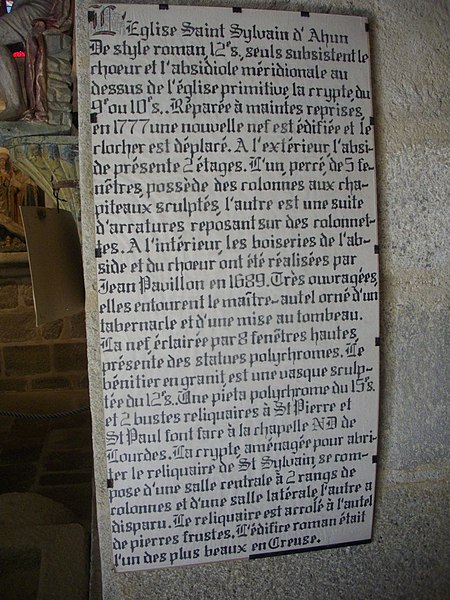 L'Eglise Saint Sylvain d'Ahun
De style roman, 12es., seuls subsistent le
choeur et l'absidiole méridionale au
dessus de l'église primitive, la crypte du
9e ou 10es.. Réparée à maintes reprises,
en 1777 une nouvelle nef est édifiée et le
clocher est déplacé. A l'extérieur l'absi-
de présente 2 étages. L'un, percé, de 5 fe-
nêtres, possède des colonnes aux cha-
piteaux sculptés, l'autre est une suite
d'arcatures reposant sur des colonnet-
tes. A l'intérieur, les boiseries de l'ab-
side et du choeur, ont été réalisées par
Jean Pavillon en 1689. Très ouvragées,
elles entourent le maître-autel orné d'un
tabernacle et d'une mise au tombeau.
La nef, éclairée par 8 fenêtres hautes,
présente des statues polychromes. Le
bénitier en granit, est une vasque sculp-
tée du 12es. Une pieta polychrome du 15es.
et 2 bustes reliquaires à St Pierre et
St Paul font face à la chapelle ND de
Lourdes. La crypte aménagée pour abri-
ter le reliquaire de St Sylvain, se com-
pose d'une salle centrale à 2 rangs de
colonnes et d'une salle latérale, l'autre a
disparu. Le reliquaire est accolé à l'autel
de pierres frustes. L'édifice roman était
l'un des plus beaux en Creuse.